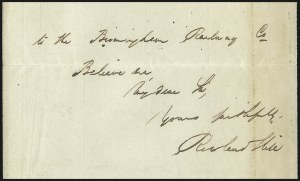 to the Birmingham Railway Co
Believe me,
My dear Sir,
Yours faithfully
Rowland Hill